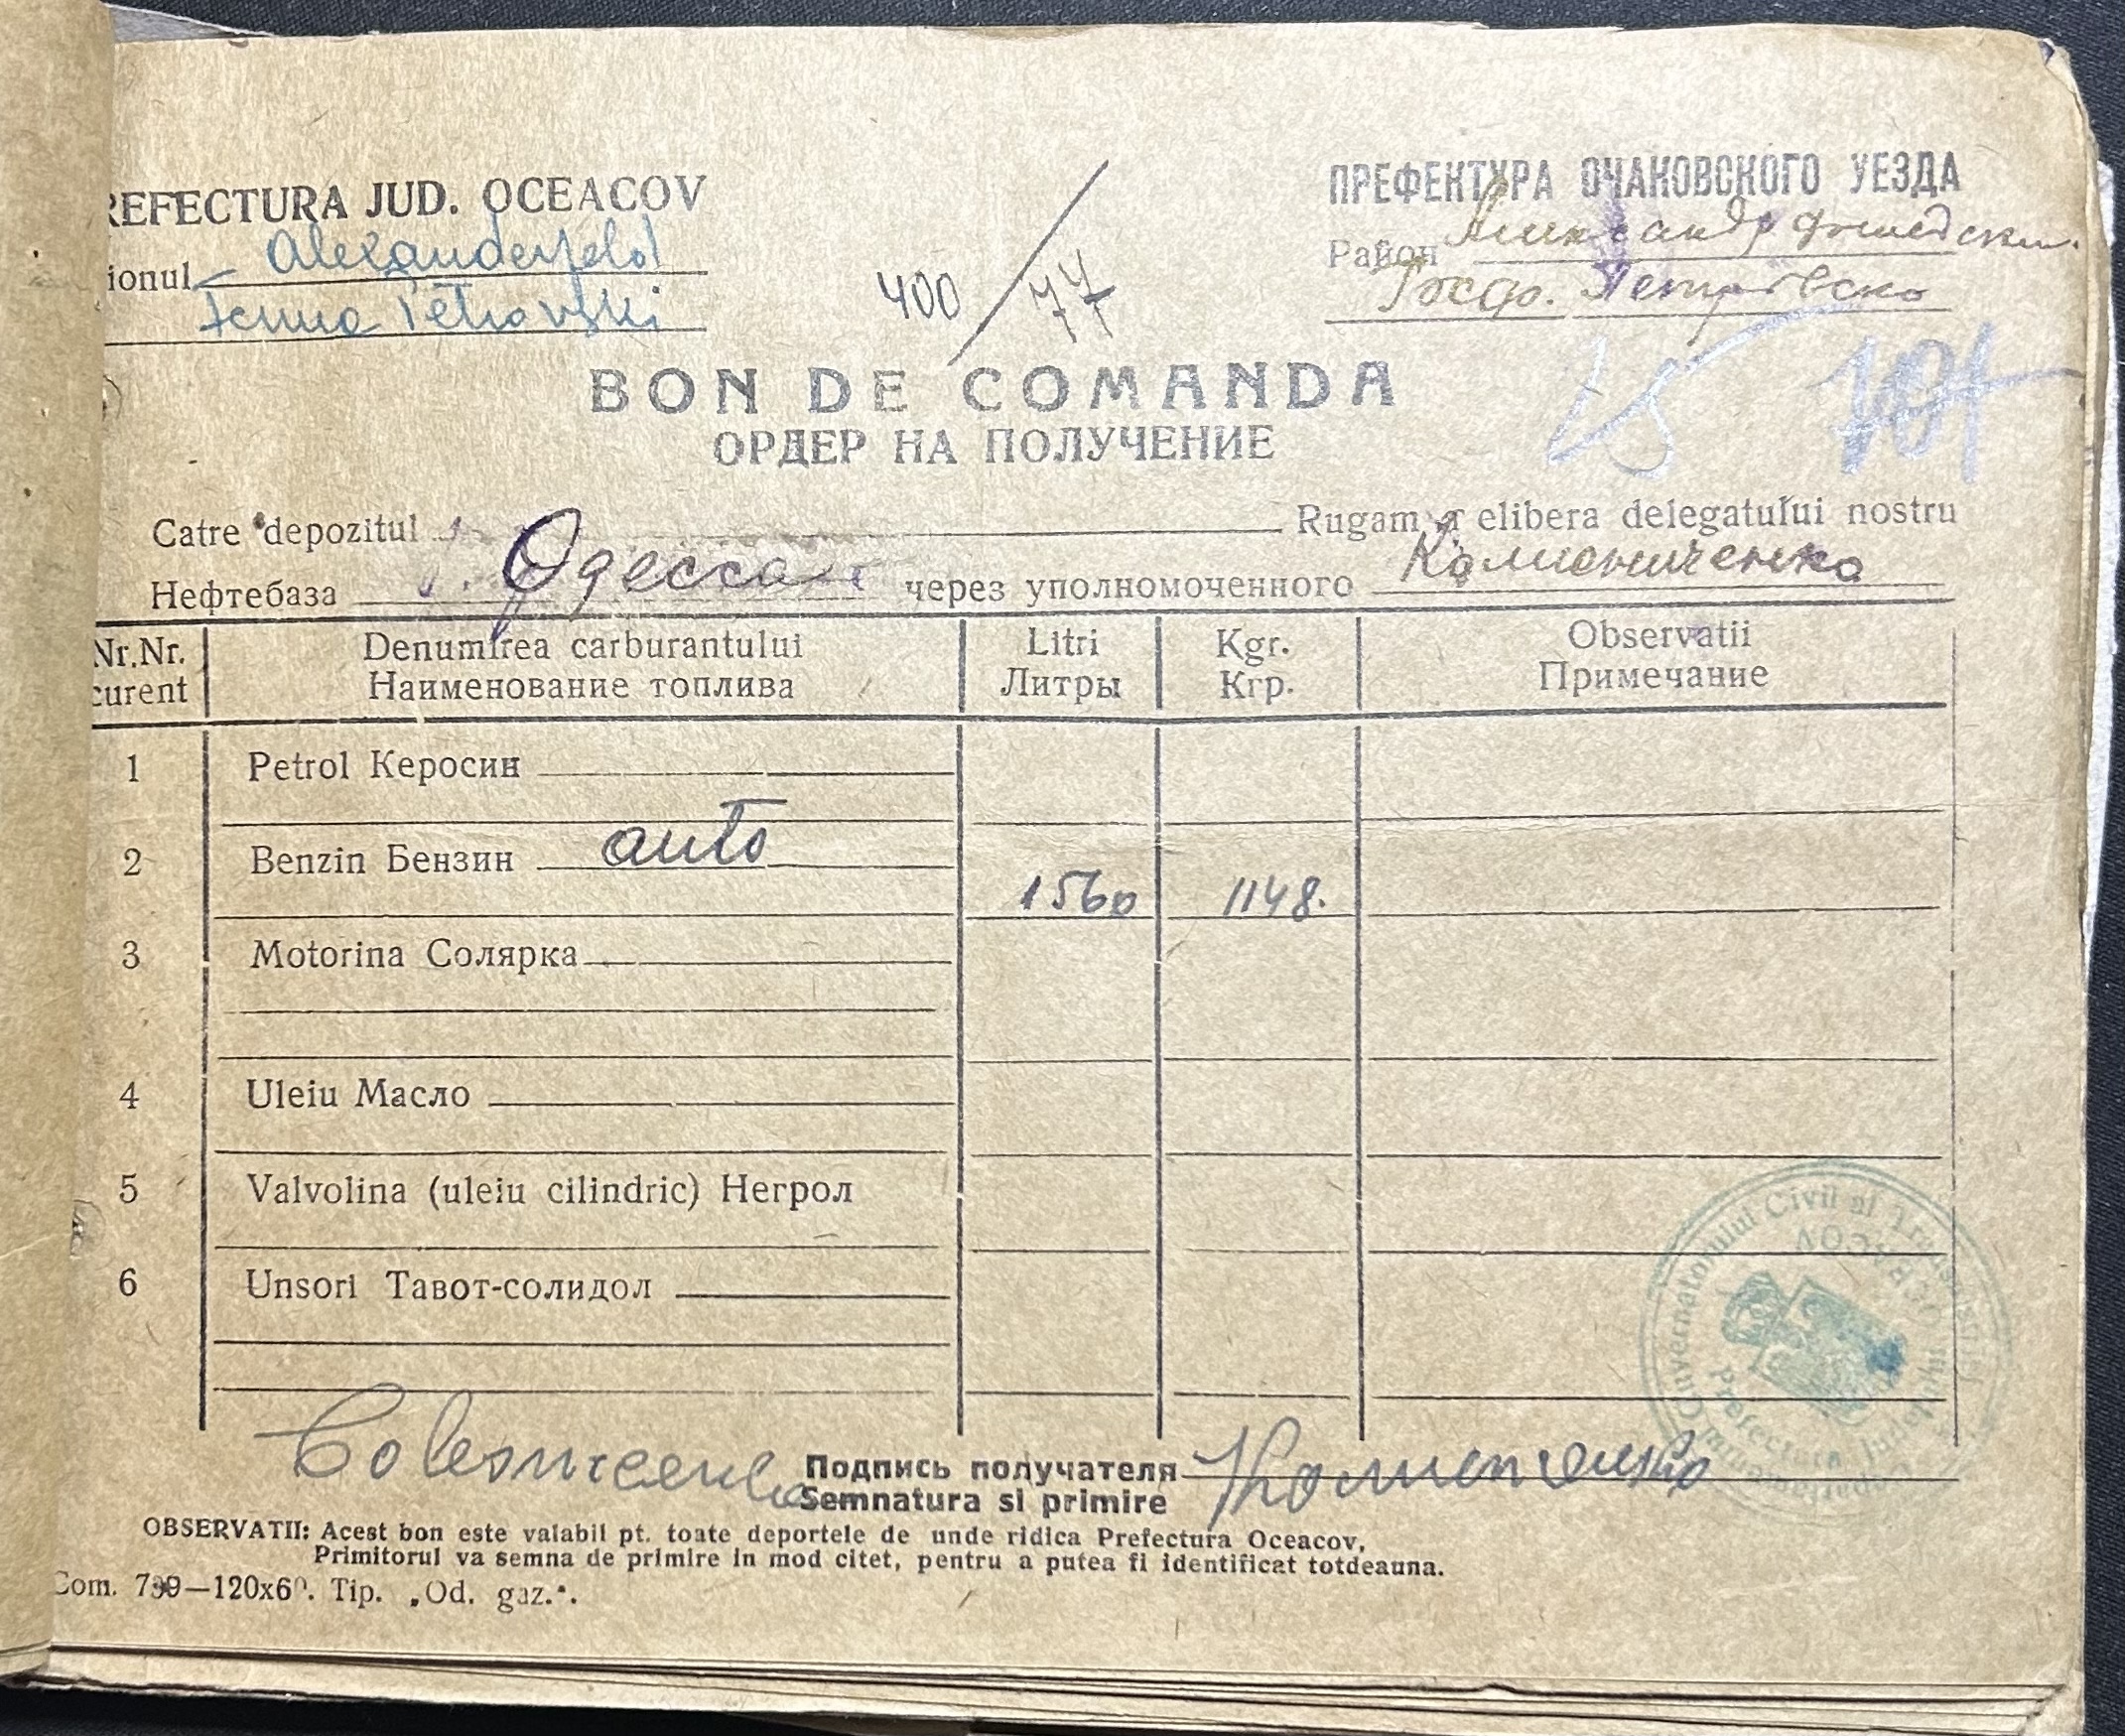 REFECTURA JUD. OCEACOV
ionul Alexanderfeld
Ferma Petrovski
400 / 77
ПРЕФЕКТУРА ОЧАКОВСКОГО УЕЗДА
Район Александрфельдский
Госф. Петровско
BON DE COMANDA
ОРДЕР НА ПОЛУЧЕНИЕ
25 101
Catre depozitul Rugam a elibera delegatului nostru
Нефтебаза г. Одесса через уполномоченного
Nr.Nr. curent
Denumirea carburantului
Наименование топлива
Litri
Литры
Kgr.
Кгр.
Observatii
Примечание
1 Petrol Керосин
2 Benzin Бензин auto 1560 1148.
3 Motorina Солярка
4 Uleiu Масло
5 Valvolina (uleiu cilindric) Негрол
6 Unsori Тавот-солидол
Guvernatorului Civil al Transnistriei
Prefectura Judetului OCEACOV
Подпись получателя
Semnatura si primire
OBSERVATII: Acest bon este valabil pt. toate deportele de unde ridica Prefectura Oceacov,
Primitorul va semna de primire in mod citet, pentru a putea fi identificat totdeauna.
Com. 739—120x60. Tip. „Od. gaz.“.